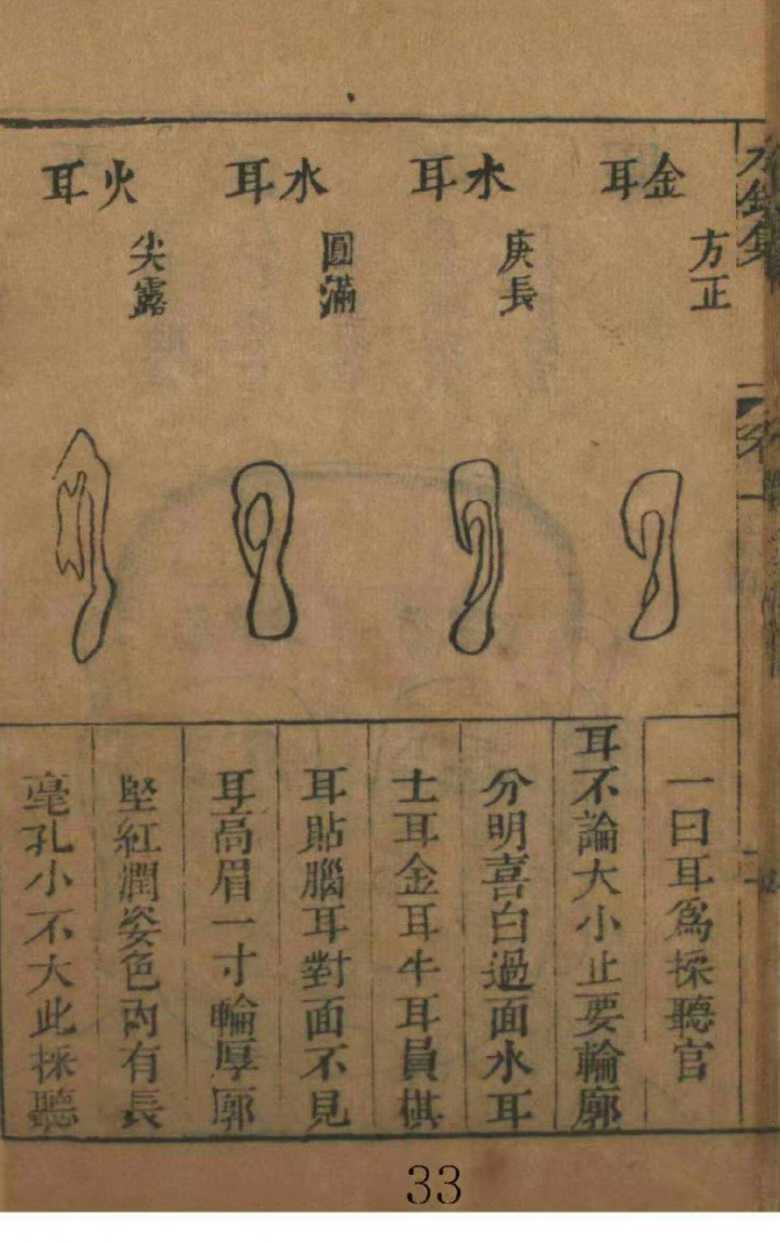 水鏡集
卷一
金耳
方正
水耳
庚長
水耳
圓滿
火耳
尖露
一曰耳爲採聽官
耳不論大小止要輪廓
分明喜白過面水耳
士耳金耳牛耳員棋
耳貼腦耳對面不見
耳高眉一寸輪厚廓
堅紅潤姿色內有長
毫孔小不大此採聽
33